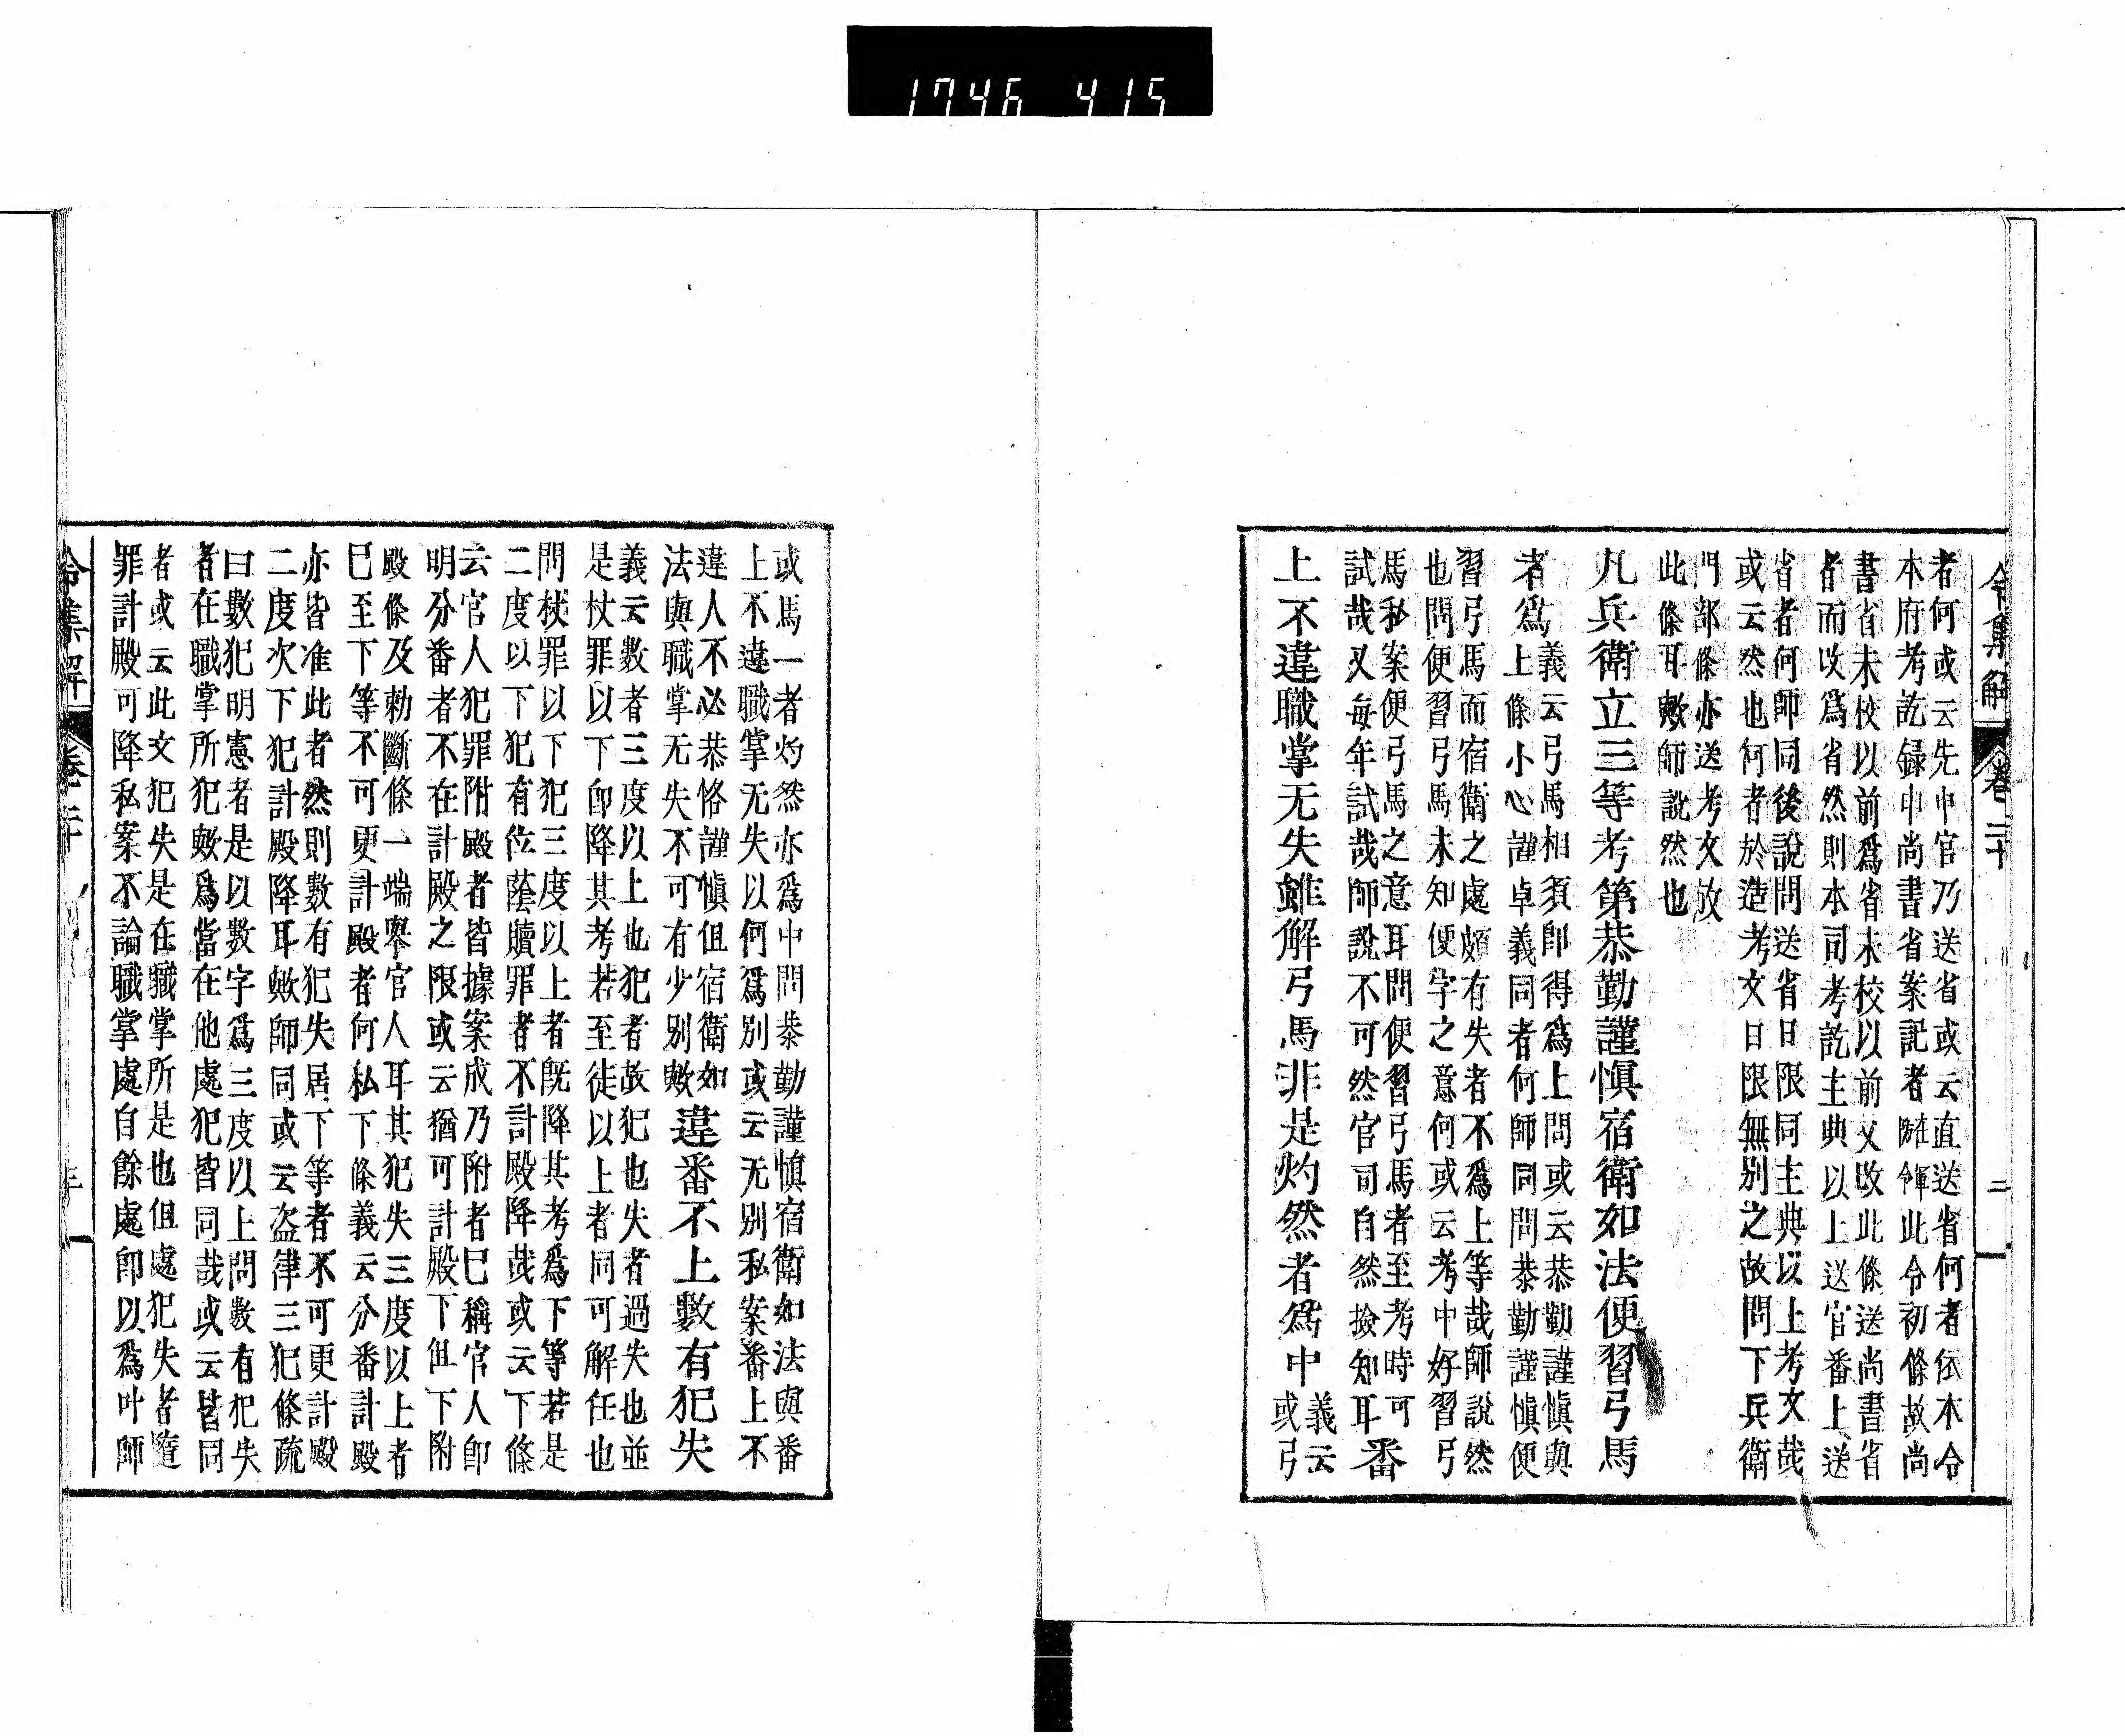 1746 4.15
令集解 卷二十 二
者何或云先申官乃送省或云直送省何者依本令
本府考訖録申尚書省案記者雖鄆此令初條故尚
書省未校以前爲省未校以前又改此條送尚書省
者而改爲省然則本司考訖主典以上送官番上送
省者何師同後説問送省日限同主典以上考文哉
或云然也何者於造考文日限無別之故問下兵衛
門部條亦送考文故
此條耳歟師説然也
凡兵衛立三等考第恭勤謹慎宿衛如法便習弓馬
者爲
義云弓馬相須即得爲上問或云恭勤謹慎與
上條小心謹卓義同者何師同問恭勤謹慎便
習弓馬而宿衛之處頗有失者不爲上等哉師説然
也問便習弓馬未知便字之意何或云考中好習弓
馬私案便弓馬之意耳問便習弓馬者至考時可
試哉又毎年試哉師説不可然官司自然撿知耳
番
上不違職掌无失雖解弓馬非是灼然者爲中
義云
或弓
或馬一者灼然亦爲中問恭勤謹慎宿衛如法與番
上不違職掌无失以何爲別或云无別私案番上不
違人不必恭恪謹慎但宿衛如
法與職掌无失不可有少別歟
違番不上數有犯失
義云數者三度以上也犯者故犯也失者過失也並
是杖罪以下即降其考若至徒以上者同可解任也
問杖罪以下犯三度以上者既降其考爲下等若是
二度以下犯有位蔭贖罪者不計殿降哉或云下條
云官人犯罪附殿者皆據案成乃附者巳稱官人即
明分番者不在計殿之限或云猶可計殿下但下附
殿條及勅斷條一端擧官人耳其犯失三度以上者
巳至下等不可更計殿者何私下條義云分番計殿
亦皆准此者然則數有犯失居下等者不可更計殿
二度次下犯計殿降耳歟師同或云盗律三犯條疏
曰數犯明憲者是以數字爲三度以上問數有犯失
者在職掌所犯歟爲當在他處犯皆同哉或云皆同
者或云此文犯失是在職掌所是也但處犯失者隨
罪計殿可降私案不論職掌處自餘處即以爲叶師
令集解 卷二十